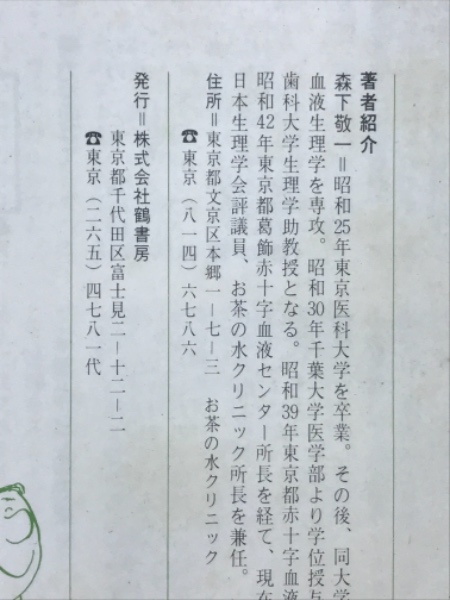 著者紹介
森下敬一＝昭和25年東京医科大学を卒業。その後、同大学
血液生理学を専攻。昭和30年千葉大学医学部より学位授与
歯科大学生理学助教授となる。昭和39年東京都赤十字血液
昭和42年東京都葛飾赤十字血液センター所長を経て、現在
日本生理学会評議員、お茶の水クリニック所長を兼任。
住所＝東京都文京区本郷一－七－三　お茶の水クリニック
☎東京（八一四）六七八六
発行＝株式会社鶴書房
東京都千代田区富士見二－十二－二
☎東京（二六五）四七八一代